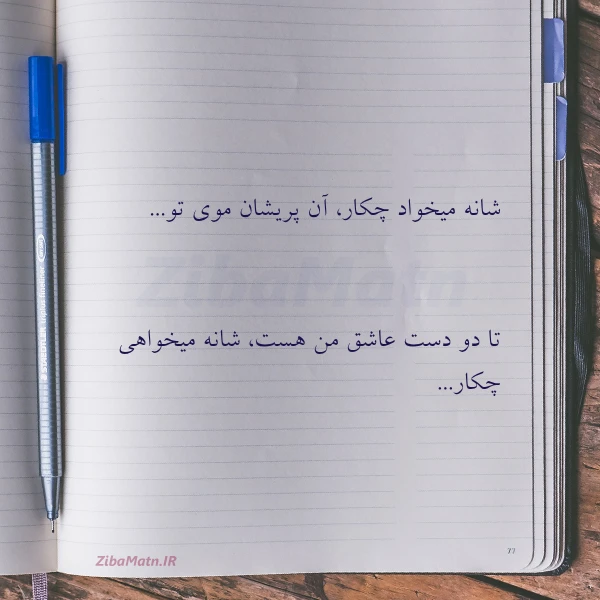 شانه میخواد چکار، آن پریشان موی تو...
ZibaMatn
تا دو دست عاشق من هست، شانه میخواهی
چکار...
77
ZibaMatn.IR